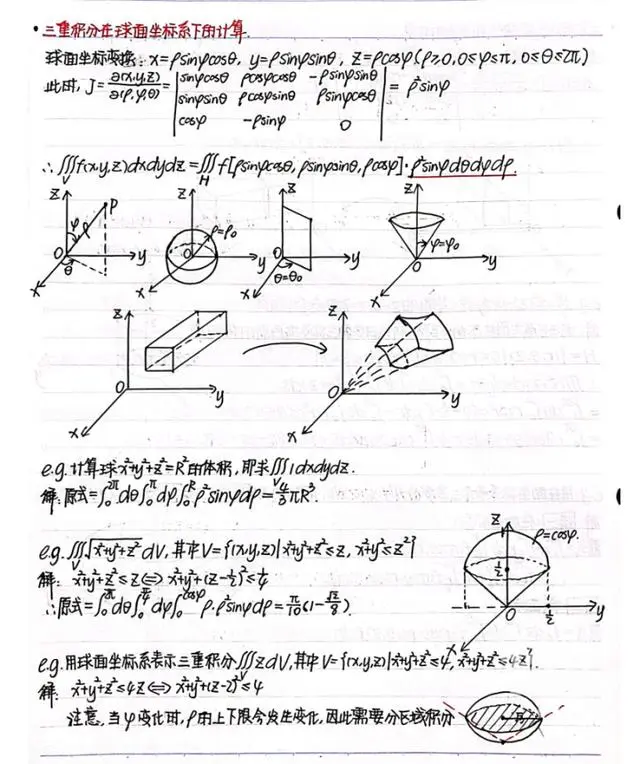 • 三重积分在球面坐标系下的计算.
球面坐标变换: x=ρsinφcosθ, y=ρsinφsinθ, z=ρcosφ(ρ≥0, 0≤φ≤π, 0≤θ≤2π)
此时, J=∂(x,y,z)/∂(ρ,φ,θ)= | sinφcosθ ρcosφcosθ -ρsinφsinθ | = ρ²sinφ
sinφsinθ ρcosφsinθ ρsinφcosθ
cosφ -ρsinφ 0
∴∭_V f(x,y,z)dxdydz=∭_H f[ρsinφcosθ, ρsinφsinθ, ρcosφ]·ρ²sinφdθdφdρ.
z P φ ρ O θ y x
z ρ=ρ₀ O y x
z O θ=θ₀ y x
z φ=φ₀ O y x
z O y x
z O y x
e.g. 计算球x²+y²+z²=R²的体积, 即求∭1dxdydz.
解: 原式=∫₀^2π dθ∫₀^π dφ∫₀^R ρ²sinφdρ=4/3πR³.
e.g. ∭_V √x²+y²+z² dV, 其中V={(x,y,z)|x²+y²+z²≤z, x²+y²≤z²}
解: x²+y²+z²≤z⟺x²+y²+(z-1/2)²≤1/4
∴原式=∫₀^2π dθ∫₀^π/4 dφ∫₀^cosφ ρ·ρ²sinφdρ=π/10(1-√2/8)
z ρ=cosφ. 1/2 O 1/2 y x
e.g. 用球面坐标系表示三重积分∭_V zdV, 其中V={(x,y,z)|x²+y²+z²≤4, x²+y²+z²≤4z}.
解: x²+y²+z²≤4z⟺x²+y²+(z-2)²≤4
注意, 当φ变化时, ρ的上下限会发生变化, 因此需要分区域积分